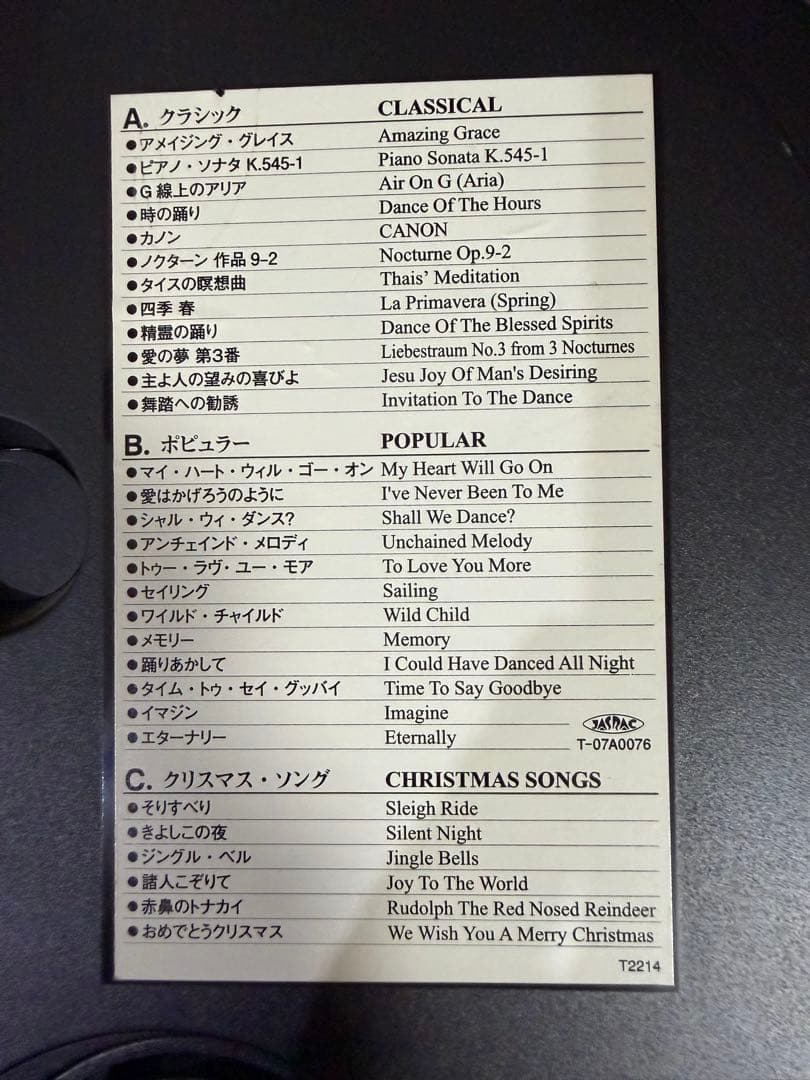 A. クラシック CLASSICAL
●アメイジング・グレイス Amazing Grace
●ピアノ・ソナタ K.545-1 Piano Sonata K.545-1
●G 線上のアリア Air On G (Aria)
●時の踊り Dance Of The Hours
●カノン CANON
●ノクターン 作品 9-2 Nocturne Op.9-2
●タイスの瞑想曲 Thais' Meditation
●四季 春 La Primavera (Spring)
●精霊の踊り Dance Of The Blessed Spirits
●愛の夢 第3番 Liebestraum No.3 from 3 Nocturnes
●主よ人の望みの喜びよ Jesu Joy Of Man's Desiring
●舞踏への勧誘 Invitation To The Dance
B. ポピュラー POPULAR
●マイ・ハート・ウィル・ゴー・オン My Heart Will Go On
●愛はかげろうのように I've Never Been To Me
●シャル・ウィ・ダンス? Shall We Dance?
●アンチェインド・メロディ Unchained Melody
●トゥー・ラヴ・ユー・モア To Love You More
●セイリング Sailing
●ワイルド・チャイルド Wild Child
●メモリー Memory
●踊りあかして I Could Have Danced All Night
●タイム・トゥ・セイ・グッバイ Time To Say Goodbye
●イマジン Imagine
JASRAC
●エターナリー Eternally T-07A0076
C. クリスマス・ソング CHRISTMAS SONGS
●そりすべり Sleigh Ride
●きよしこの夜 Silent Night
●ジングル・ベル Jingle Bells
●諸人こぞりて Joy To The World
●赤鼻のトナカイ Rudolph The Red Nosed Reindeer
●おめでとうクリスマス We Wish You A Merry Christmas
T2214